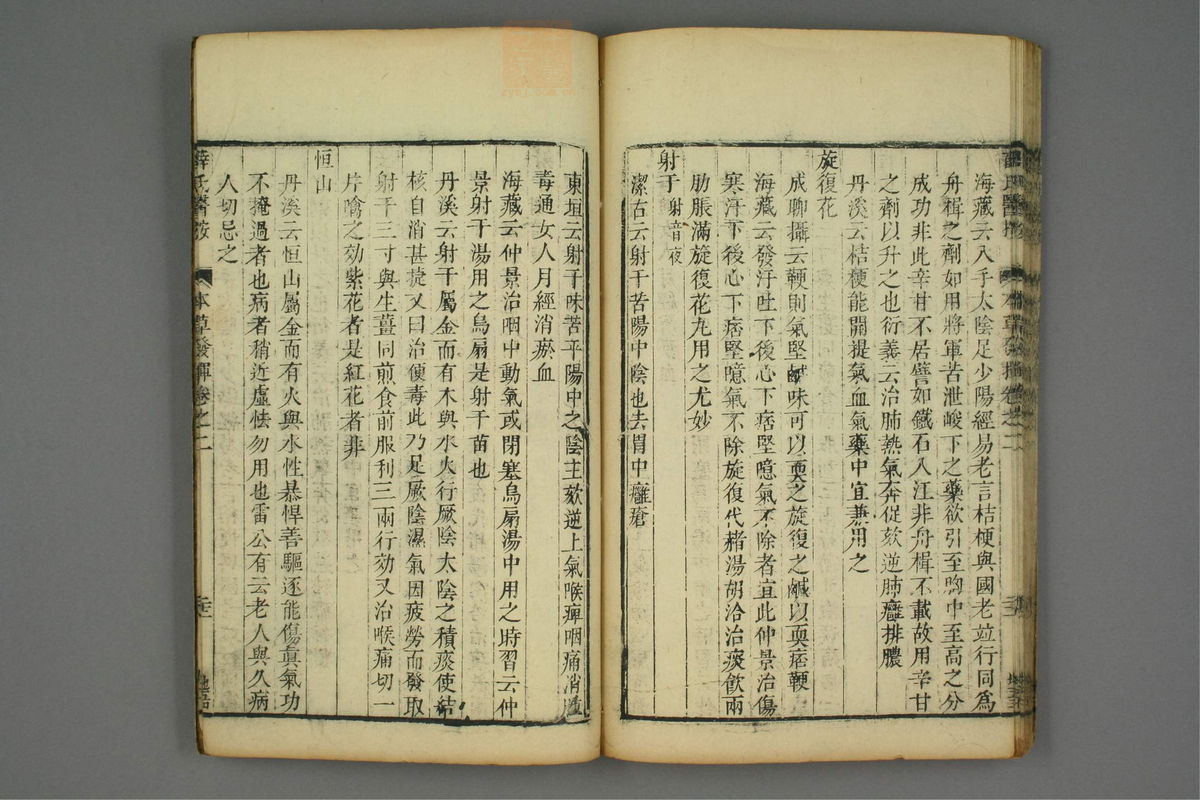 海藏云入手太陰足少陽經易老言桔梗與國老並行同爲
舟楫之劑如用將軍苦泄峻下之藥欲引至胷中至高之分
成功非此辛甘不居譬如鐵石入江非舟楫不載故用辛甘
之劑以升之也衍義云治肺熱氣奔促欬逆肺癰排膿
丹溪云桔梗能開提氣血氣藥中宜兼用之
旋復花
成聊攝云鞕則氣堅鹹味可以耎之旋復之鹹以耎痞鞕
海藏云發汗吐下後心下痞堅噫氣不除者宜此仲景治傷
寒汗下後心下痞堅噫氣不除旋復代赭湯胡洽治痰飲兩
肋脹滿旋復花丸用之尤妙
射干 射音夜
潔古云射干苦陽中陰也去胃中癰瘡
東垣云射干味苦平陽中之陰主欬逆上氣喉痺咽痛消
毒通女人月經消瘀血
海藏云仲景治咽中動氣或閉塞烏扇湯中用之時習云仲
景射干湯用之烏扇是射干苗也
丹溪云射干屬金而有木與水火行厥陰太陰之積痰使結
核自消甚捷又曰治便毒此乃足厥陰濕氣因疲勞而發取
射干三寸與生薑同煎食前服利三兩行効又治喉痛切一
片噙之効紫花者是紅花者非
恒山
丹溪云恒山屬金而有火與水性暴悍善驅逐能傷眞氣功
不掩過者也病者稍近虛怯勿用也雷公有云老人與久病
人切忌之
薛氏醫按 本草發揮卷之二